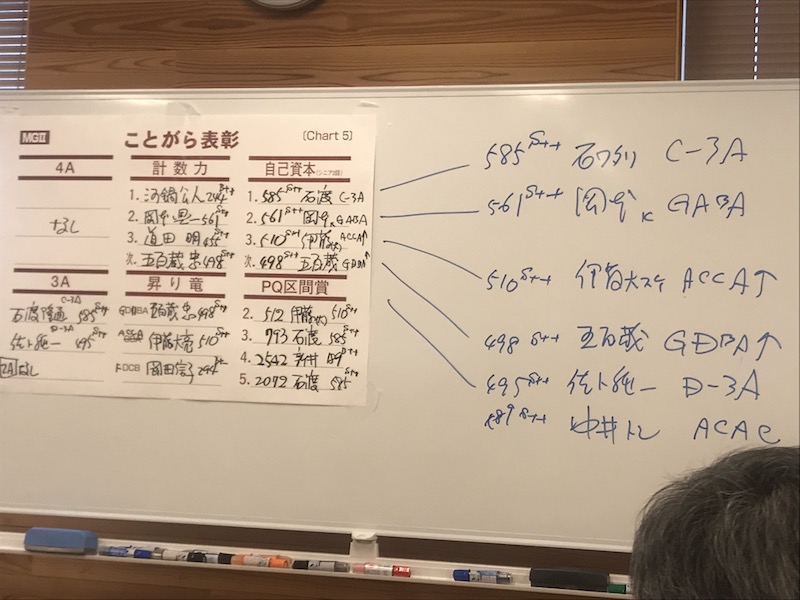 MGⅡ
ことがら表彰
〔Chart 5〕
4A
なし
3A
C-3A
石渡 585 S++
D-3A
佐ト純一 495 S++
2A なし
計数力
1. 河鍋公人 294 B++
2. 岡本 561 S++
3. 道田 明 455 S++
次. 五百蔵 忠 498 S++
昇り竜
GDBA 五百蔵 忠 498 S++
伊藤大 510 S++
DCB 岡田信子 294
自己資本(シニア2部)
1. 585 S++ 石渡 C-3A
2. 561 S++ 岡本 GABA
3. 510 S++ 伊藤(大) ACCA↑
次. 498 S++ 五百蔵 GDBA↑
PQ区間賞
2. 512 伊藤(大) 510 S++
3. 793 石渡 585 S++
4. 2542
5. 2072 石渡 585 S++
585 S++ 石ワタリ C-3A
561 S++ 岡本 K GABA
510 S++ 伊藤大スケ ACCA↑
498 S++ 五百蔵 GDBA↑
495 S++ 佐ト純一 D-3A
489 S++ 中井 ACAC